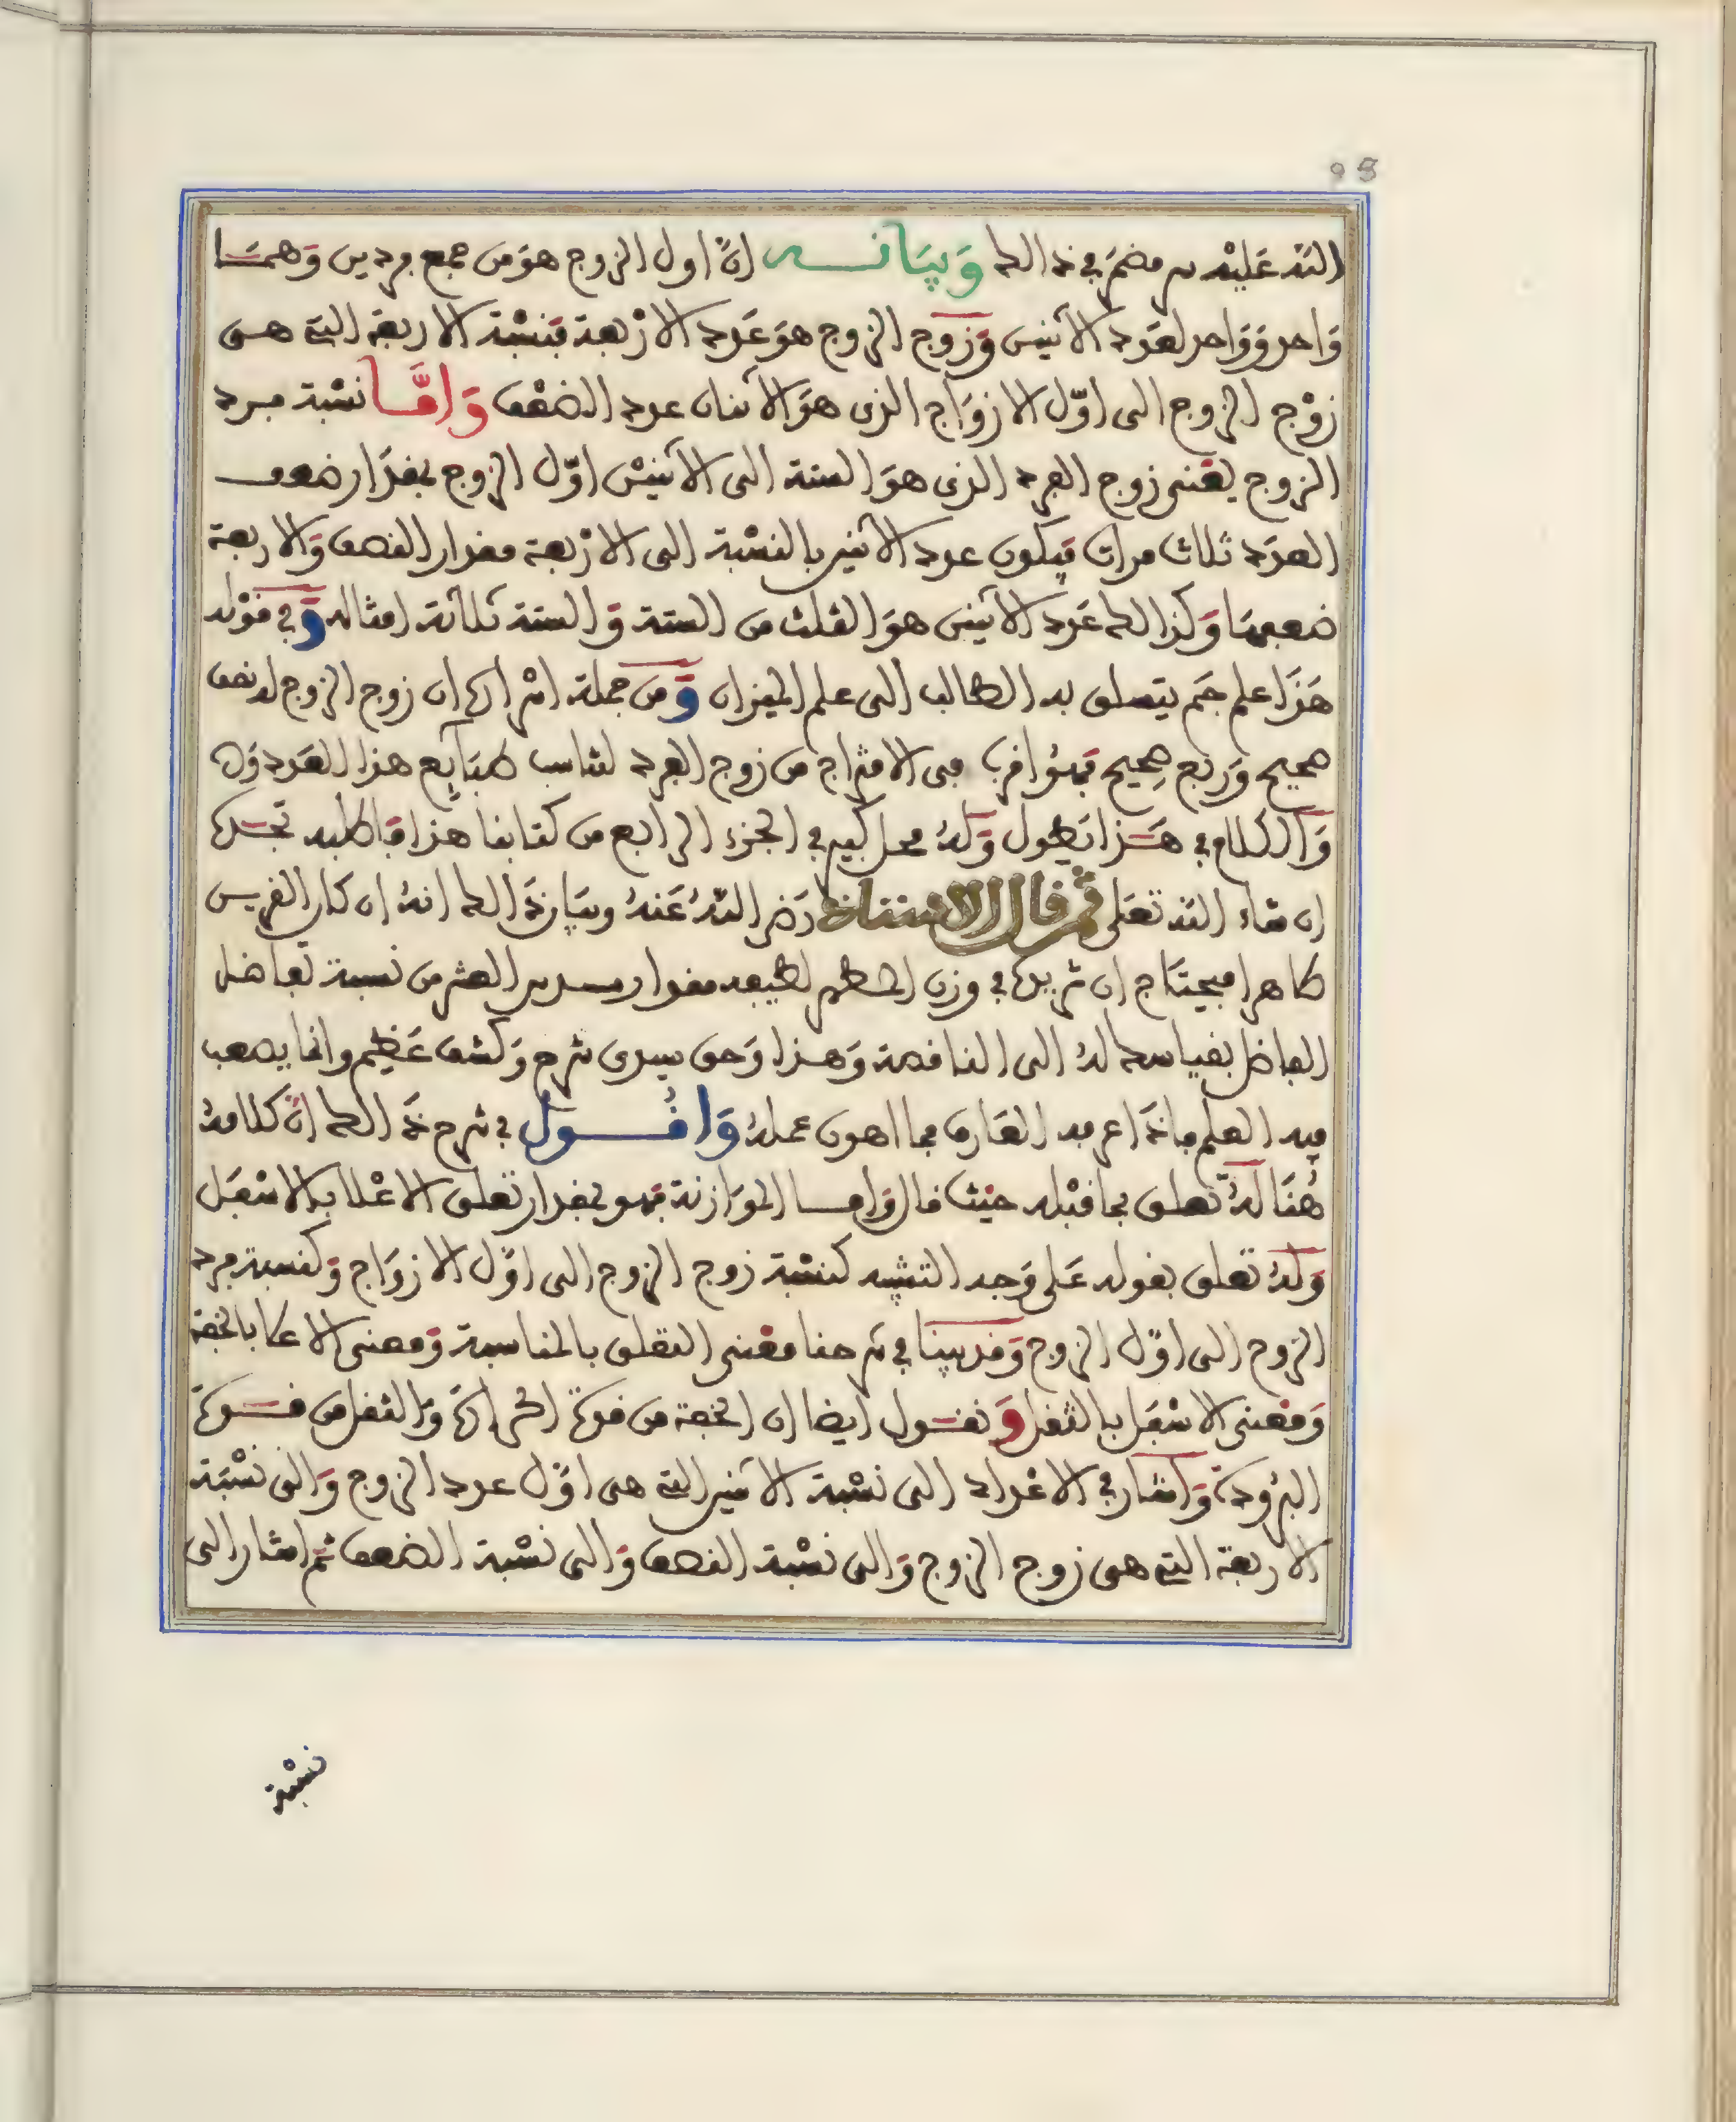 98
الله عليه وبيانه ان اول الزوج هو من جمع فردين وهما
واحد وواحد لعدد الاثنين وزوج الزوج هو عدد الاربعة فنسبة الاربعة التي هي
زوج الزوج الى اول الازواج الذي هو الاثنان عدد الضعف واما نسبة فرد
الزوج يعني زوج الفرد الذي هو الستة الى الاثنين اول الزوج بمقدار ضعف
العدد ثلاث مرات فيكون عدد الاثنين بالنسبة الى الاربعة مقدار النصف والاربعة
ضعفها وكذالك عدد الاثنين هو الثلث من الستة والستة ثلاثة امثاله وفي قوله
هذا علم جم يتصل به الطالب الى علم الميزان ومن جملة اسراره ان زوج الزوج له نصف
صحيح وربع صحيح فهو اقرب في الامتزاج من زوج الفرد لتناسب طبايع هذا العدد
والكلام في هذا يطول وله محل كبير في الجزء الرابع من كتابنا هذا فاطلبه تجده
ان شاء الله تعلى ثم قال الاستاذ رضي الله عنه وبيان ذالك انه ان كان الفريس
طاهرا فيحتاج ان تزيده في وزن لطيفه مقدار سدس العشر من نسبة تفاضل
الفاضل بقياسه له الى الناقصة وهذا وحق سيدي شرح وكشف عظيم وانما يصعب
فيه العلم فاذا عرفه العارف فما اهون عمله واقول في شرح ذالك ان كلامه
هنا له تعلق بما قبله حيث قال واما الموازنة فهو بمقدار تعلق الاعلا بالاسفل
وله تعلق بقوله على وجه التشبيه كنسبة زوج الزوج الى اول الازواج وكنسبة فرد
الزوج الى اول الزوج وقد بينا في شرحنا معنى التعلق بالمناسبة ومعنى الاعلا بالخفة
ومعنى الاسفل بالثقل ونقول ايضا ان الخفة من قوة الحرارة والثقل من قوة
البرودة واشار في الاعداد الى نسبة الاثنين التي هي اول عدد الزوج والى نسبة
الاربعة التي هي زوج الزوج والى نسبة النصف والى نسبة الضعف ثم اشار الى
نسبة